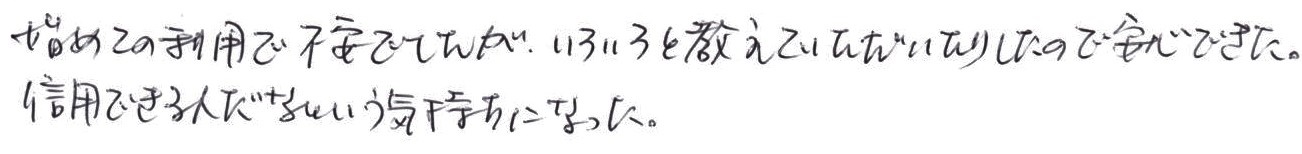 始めての利用で不安でしたが、いろいろと教えていただいたりしたので安心できた。
信用できる人だなという気持ちになった。